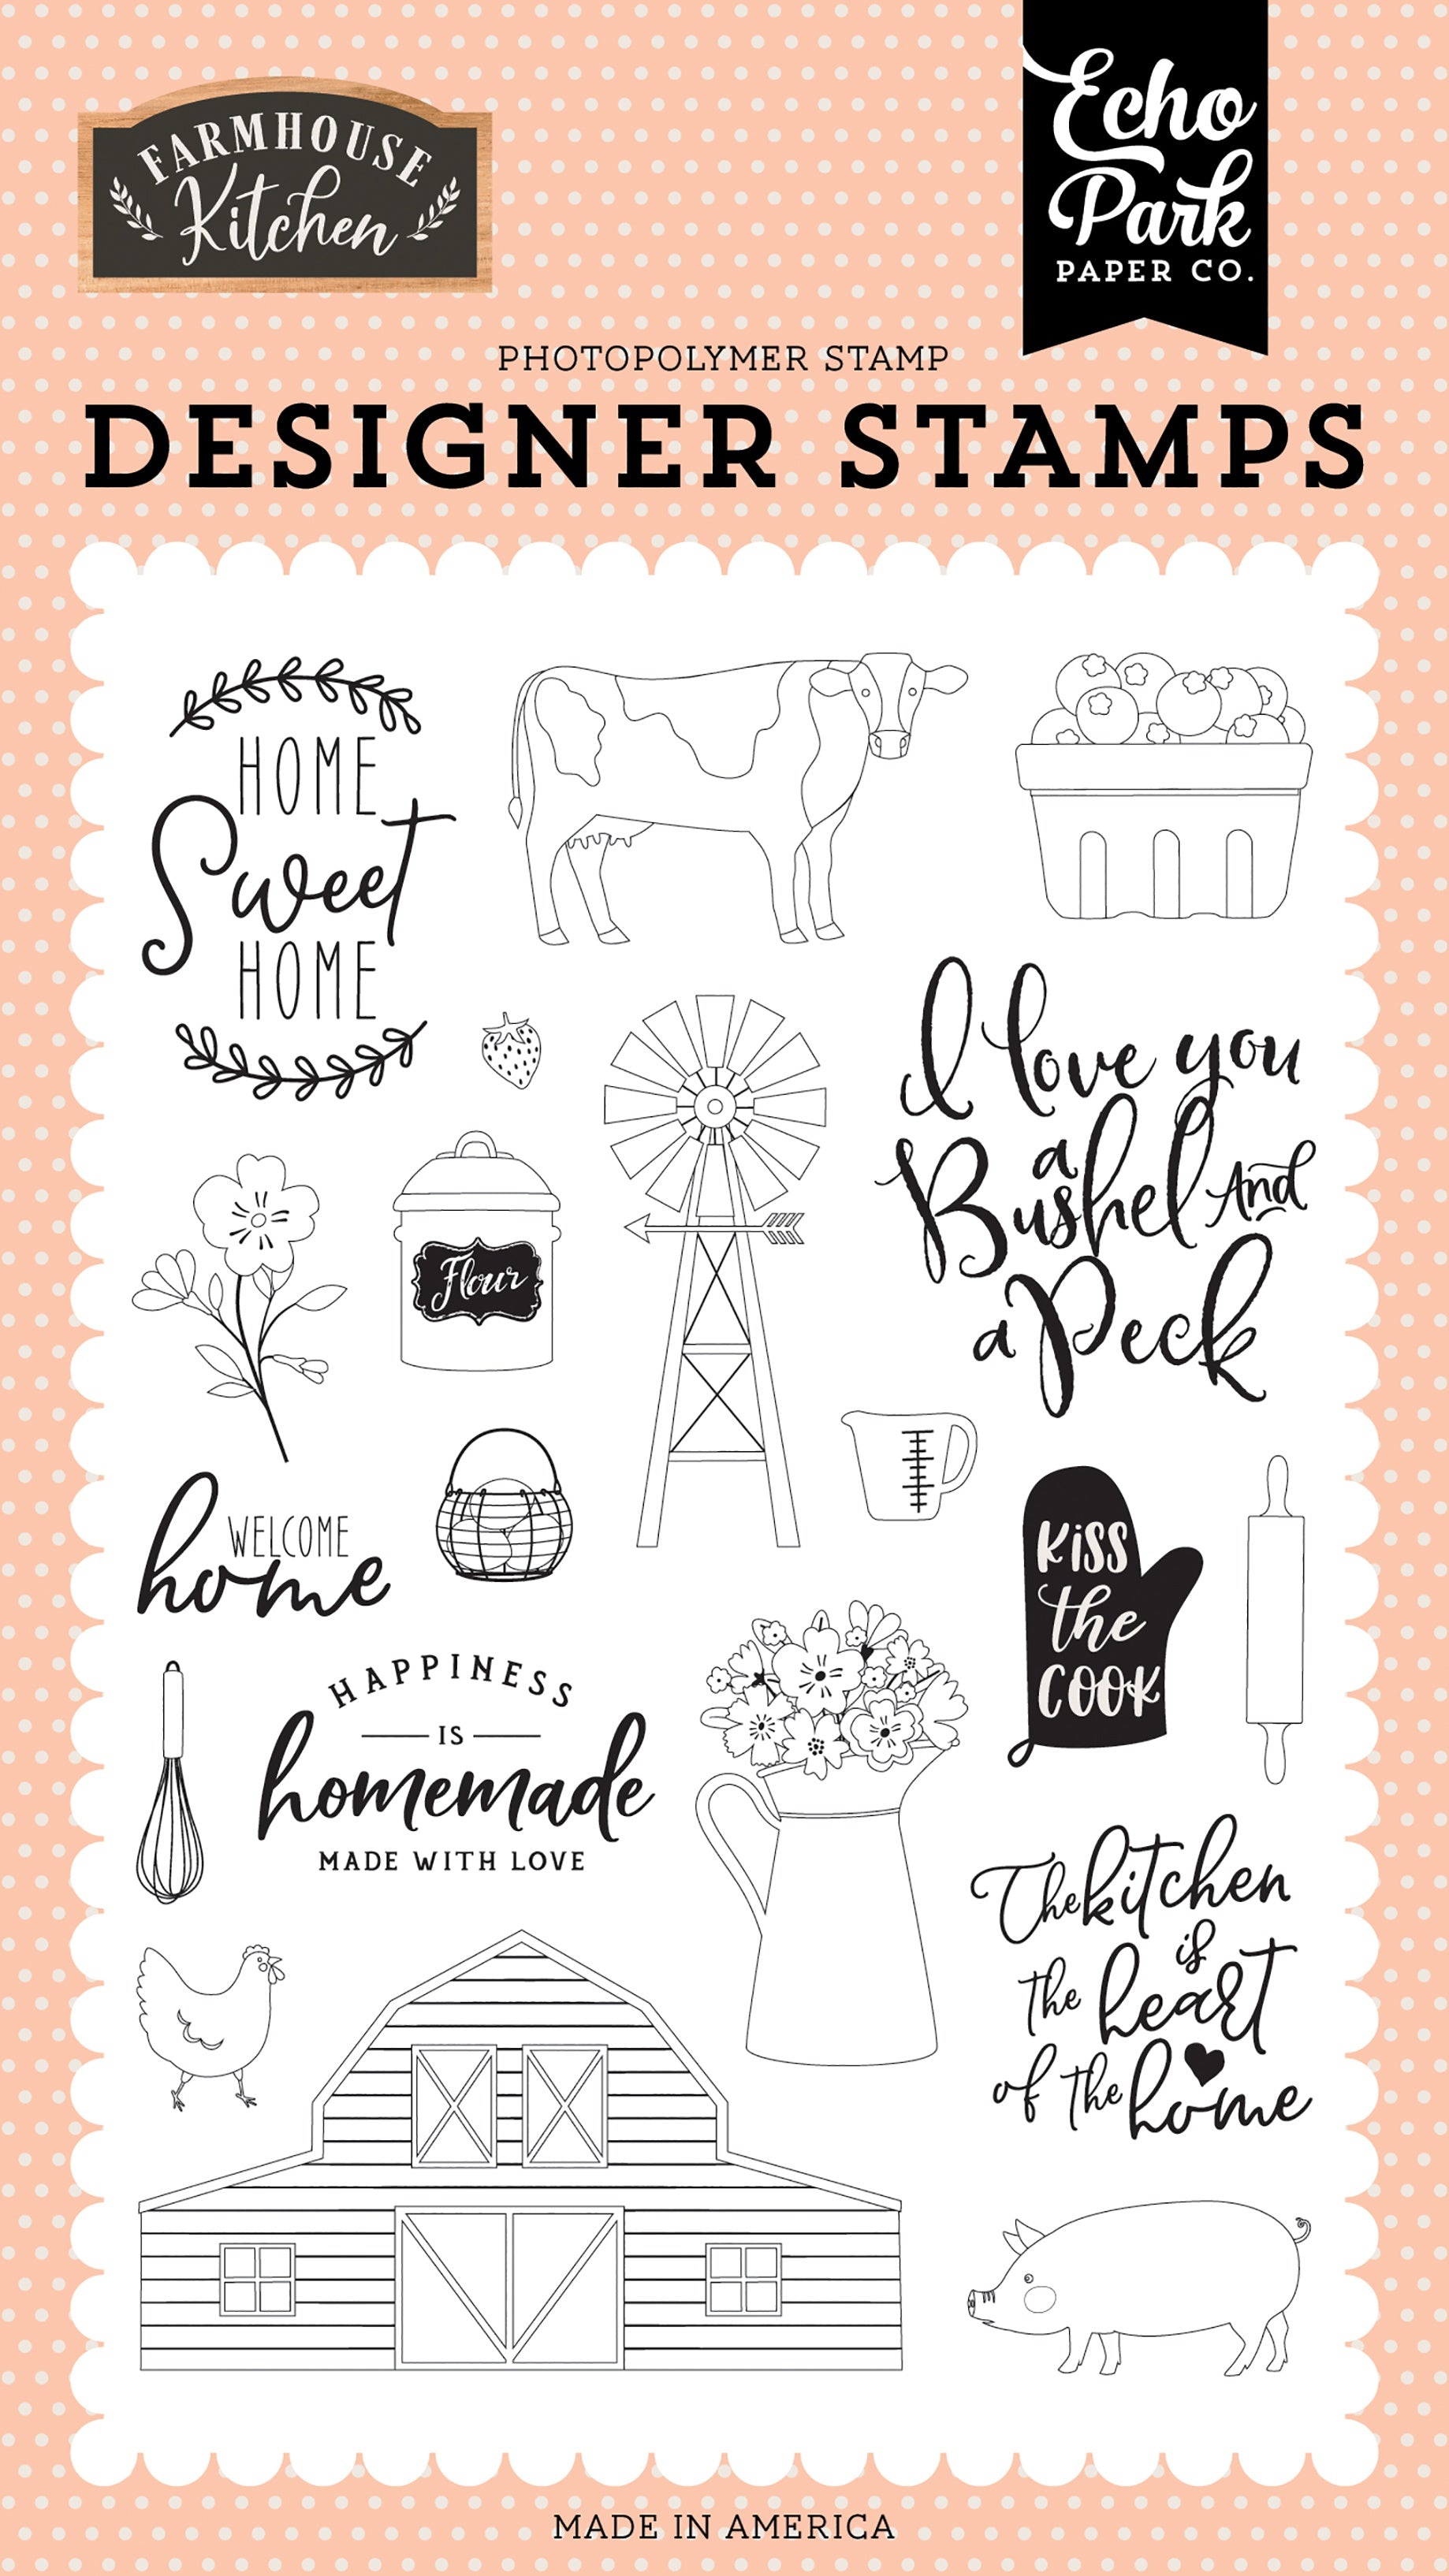 FARMHOUSE
Kitchen
Echo
Park
PAPER CO.
PHOTOPOLYMER STAMP
DESIGNER STAMPS
HOME
Sweet
HOME
I love you
a
Bushel And
a Peck
Flour
WELCOME
home
KISS
the
COOK
HAPPINESS
IS
homemade
MADE WITH LOVE
The kitchen
is
the heart
of the home
MADE IN AMERICA